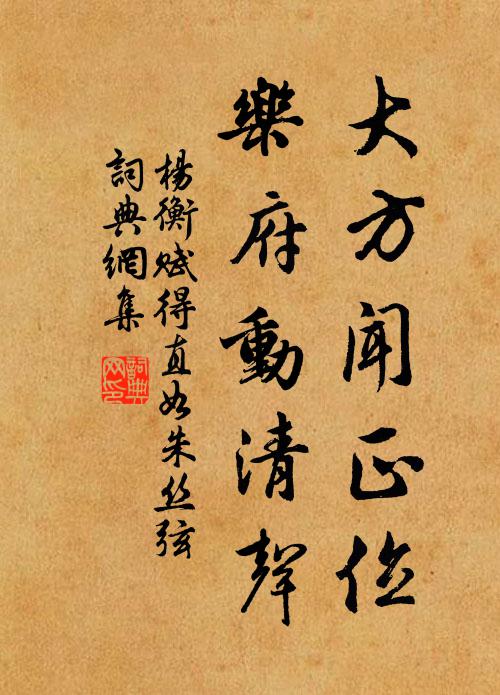 大方聞正位
樂府動清聲
楊衡賦得直如朱丝弦
詞典網集
詞典网印